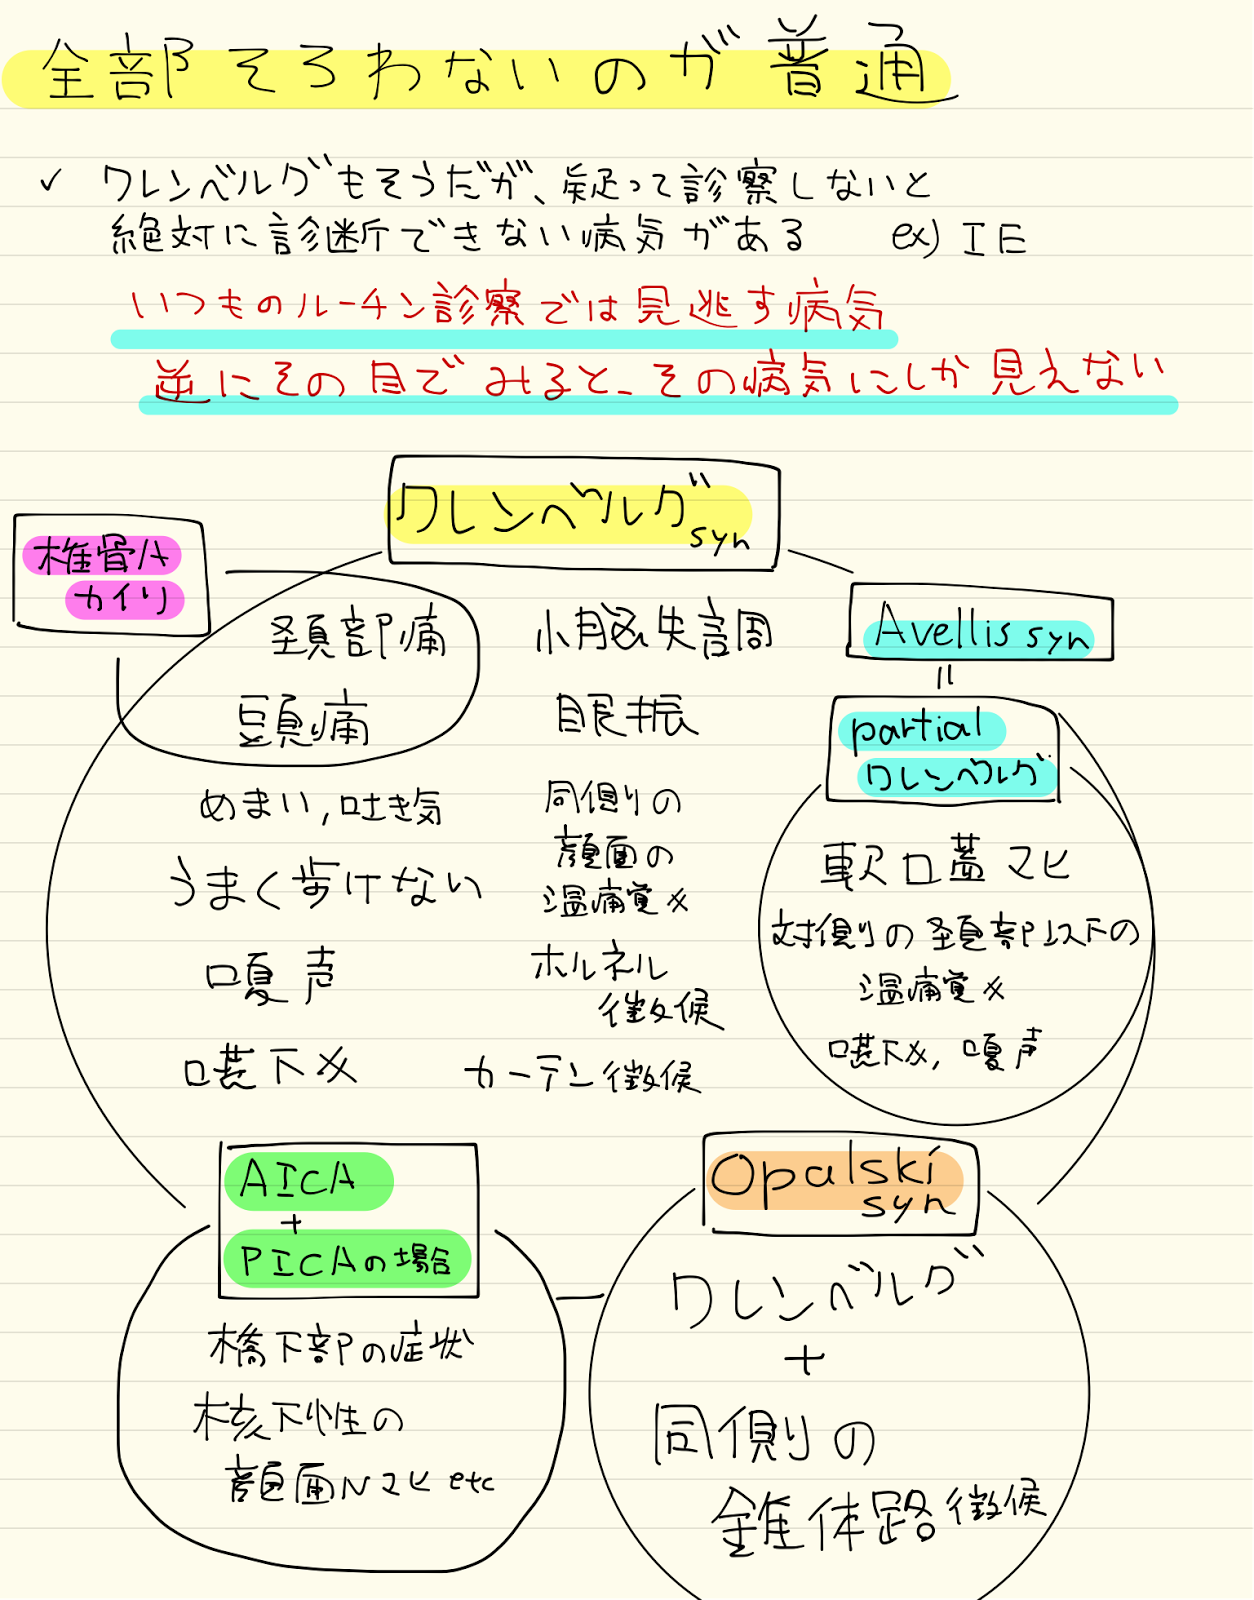 全部そろわないのが普通
✓ ワレンベルグもそうだが、疑って診察しないと
絶対に診断できない病気がある ex) IE
いつものルーチン診察では見逃す病気
逆にその目でみると、その病気にしか見えない
ワレンベルグsyn
椎骨A
カイリ
頚部痛
頭痛
めまい,吐き気
うまく歩けない
嗄声
嚥下×
小脳失調
眼振
同側の
顔面の
温痛覚×
ホルネル
徴候
カーテン徴候
Avellis syn
=
partial
ワレンベルグ
軟口蓋マヒ
対側の頚部以下の
温痛覚×
嚥下×, 嗄声
AICA
+
PICAの場合
橋下部の症状
核下性の
顔面Nマヒ etc
Opalski
syn
ワレンベルグ
+
同側の
錐体路徴候